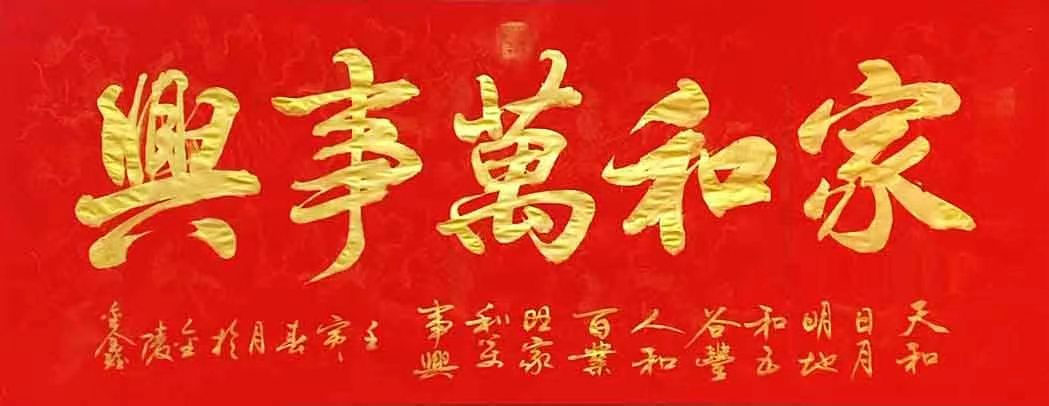 家和萬事興
天和日月明地和五谷豐人和百業旺家和万事興
壬寅春月於金陵鑫